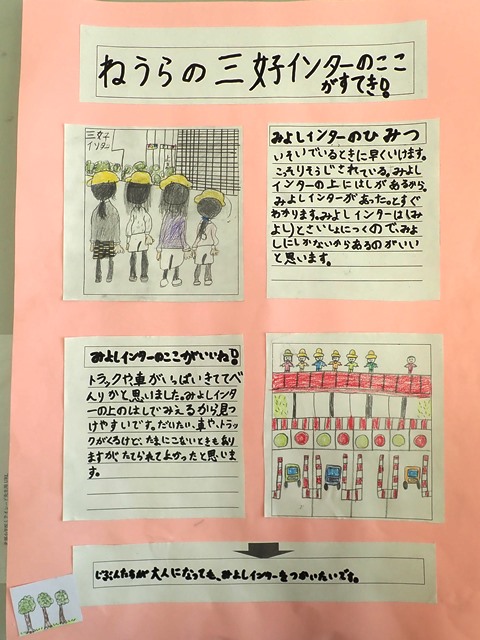 ねうらの三好インターのここ
がすてき!
三好
インター
みよしインターのひみつ
いそいでいるときに早くいけます。
こっそりそうじされている。みよし
インターの上にはしがあるから、
みよしインターがあった。とすぐ
わかります。みよしインターは(み
よし)とさいしょにつくので、みよ
しにしかないからあるのがいい
と思います。
みよしインターのここがいいね!
トラックや車がいっぱいきてて
んりかと思いました。みよしインタ
ーの上のはしでみえるから見つ
けやすいです。だいたい、車や、トラッ
クがくるけど、たまにこないときもあり
ますがたてられてよかったと思いま
す。
じぶんたちが大人になっても、みよしインターをつかいたいです。